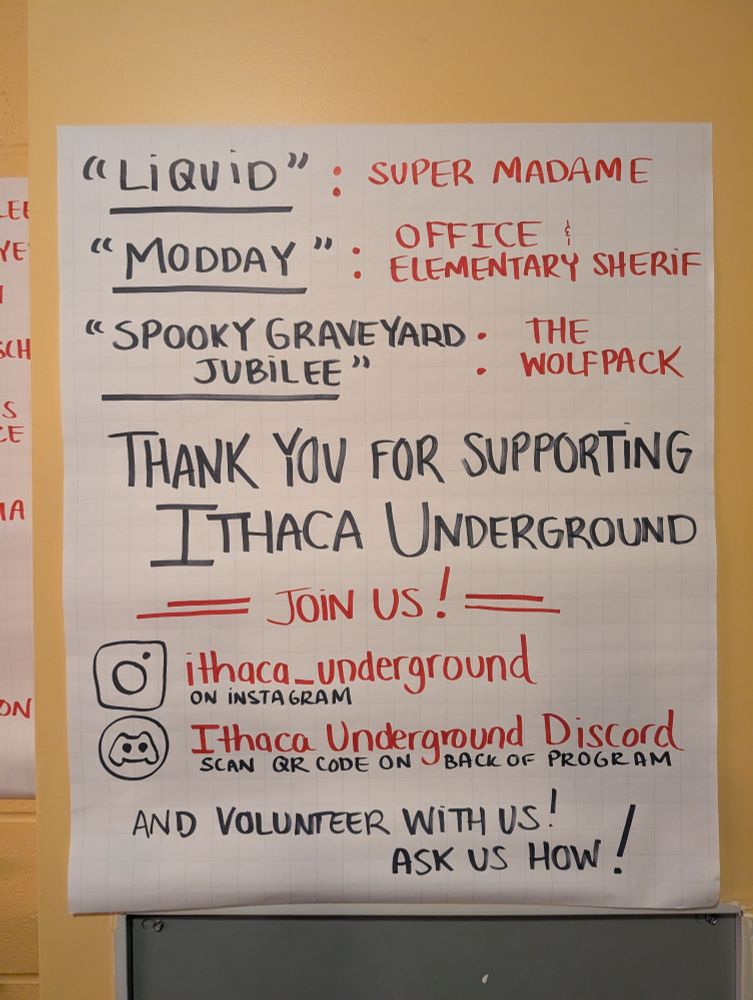 "LiQUiD" : SUPER MADAME
"MODDAY" : OFFICE &
ELEMENTARY SHERiF
"SPOOKY GRAVEYARD : THE
JUBiLEE" WOLFPACK
THANK YOU FOR SUPPORTiNG
ITHACA UNDERGROUND
JOiN US!
ithaca_underground
ON iNSTAGRAM
Ithaca Underground Discord
SCAN QR CODE ON BACK OF PROGRAM
AND VOLUNTEER WiTH US!
ASK US HOW!
LEE
YE
SCH
S
CE
MA
ON